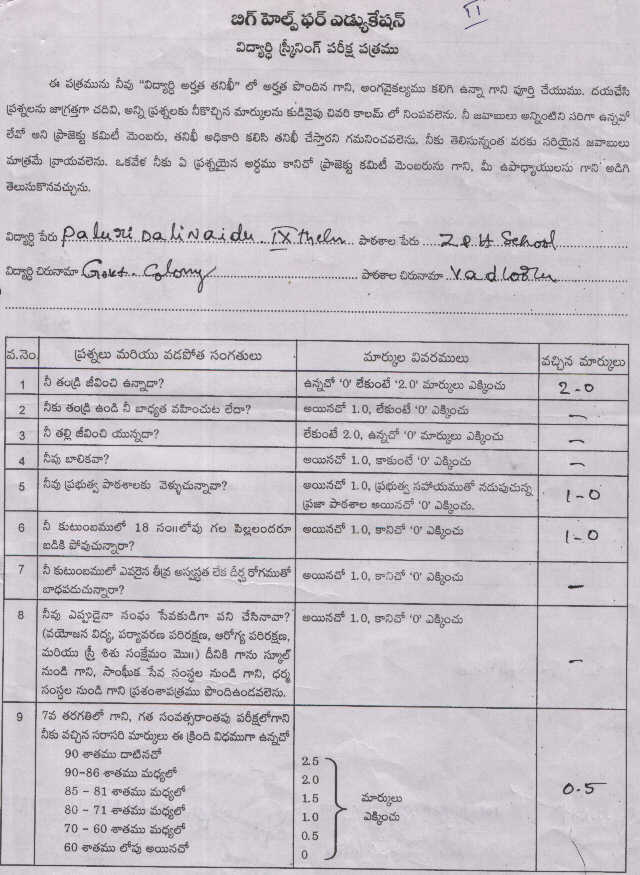 11
బిగ్ హెల్ప్ ఫర్ ఎడ్యుకేషన్
విద్యార్థి స్క్రీనింగ్ పరీక్ష పత్రము
ఈ పత్రమును నీవు "విద్యార్థి అర్హత తనిఖీ" లో అర్హత పొందిన గాని, అంగవైకల్యము కలిగి ఉన్నా గాని పూర్తి చేయుము. దయచేసి
ప్రశ్నలను జాగ్రత్తగా చదివి, అన్ని ప్రశ్నలకు నీకొచ్చిన మార్కులను కుడివైపు చివరి కాలమ్ లో నింపవలెను. నీ జవాబులు అన్నింటిని సరిగా ఉన్నవో
లేవో అని ప్రాజెక్టు కమిటీ మెంబరు, తనిఖీ అధికారి కలిసి తనిఖీ చేస్తారని గమనించవలెను. నీకు తెలిసున్నంత వరకు సరియైన జవాబులు
మాత్రమే వ్రాయవలెను. ఒకవేళ నీకు ఏ ప్రశ్నయైన అర్థము కానిచో ప్రాజెక్టు కమిటీ మెంబరును గాని, మీ ఉపాధ్యాయులను గాని అడిగి
తెలుసుకొనవచ్చును.
విద్యార్థి పేరు Paluri Dali Naidu. IX పాఠశాల పేరు Z P H School
విద్యార్థి చిరునామా Govt. Colony పాఠశాల చిరునామా
వ.నెం. ప్రశ్నలు మరియు వడపోత సంగతులు మార్కుల వివరములు వచ్చిన మార్కులు
1 నీ తండ్రి జీవించి ఉన్నాడా? ఉన్నచో '0' లేకుంటే '2.0' మార్కులు ఎక్కించు 2-0
2 నీకు తండ్రి ఉండి నీ బాధ్యత వహించుట లేదా? అయినచో 1.0, లేకుంటే '0' ఎక్కించు –
3 నీ తల్లి జీవించి యున్నదా? లేకుంటే 2.0, ఉన్నచో '0' మార్కులు ఎక్కించు –
4 నీవు బాలికవా? అయినచో 1.0, కాకుంటే '0' ఎక్కించు –
5 నీవు ప్రభుత్వ పాఠశాలకు వెళ్ళుచున్నావా? అయినచో 1.0, ప్రభుత్వ సహాయముతో నడుపుచున్న 1-0
ప్రజా పాఠశాల అయినచో '0' ఎక్కించు.
6 నీ కుటుంబములో 18 సం॥లోపు గల పిల్లలందరూ అయినచో 1.0, కానిచో '0' ఎక్కించు 1-0
బడికి పోవుచున్నారా?
7 నీ కుటుంబములో ఎవరైన తీవ్ర అస్వస్థత లేక దీర్ఘ రోగముతో అయినచో 1.0, కానిచో '0' ఎక్కించు –
బాధపడుచున్నారా?
8 నీవు ఎప్పుడైనా సంఘ సేవకుడిగా పని చేసినావా? అయినచో 1.0, కానిచో '0' ఎక్కించు –
(వయోజన విద్య, పర్యావరణ పరిరక్షణ, ఆరోగ్య పరిరక్షణ,
మరియు స్త్రీ శిశు సంక్షేమం మొ॥) దీనికి గాను స్కూల్
నుండి గాని, సాంఘీక సేవ సంస్థల నుండి గాని, ధర్మ
సంస్థల నుండి గాని ప్రశంశాపత్రము పొందిఉండవలెను.
9 7వ తరగతిలో గాని, గత సంవత్సరాంతపు పరీక్షలోగాని
నీకు వచ్చిన సరాసరి మార్కులు ఈ క్రింది విధముగా ఉన్నచో
90 శాతము దాటినచో 2.5
90-86 శాతము మధ్యలో 2.0
85 - 81 శాతము మధ్యలో 1.5 మార్కులు 0.5
80 - 71 శాతము మధ్యలో 1.0 ఎక్కించు
70 - 60 శాతము మధ్యలో 0.5
60 శాతము లోపు అయినచో 0